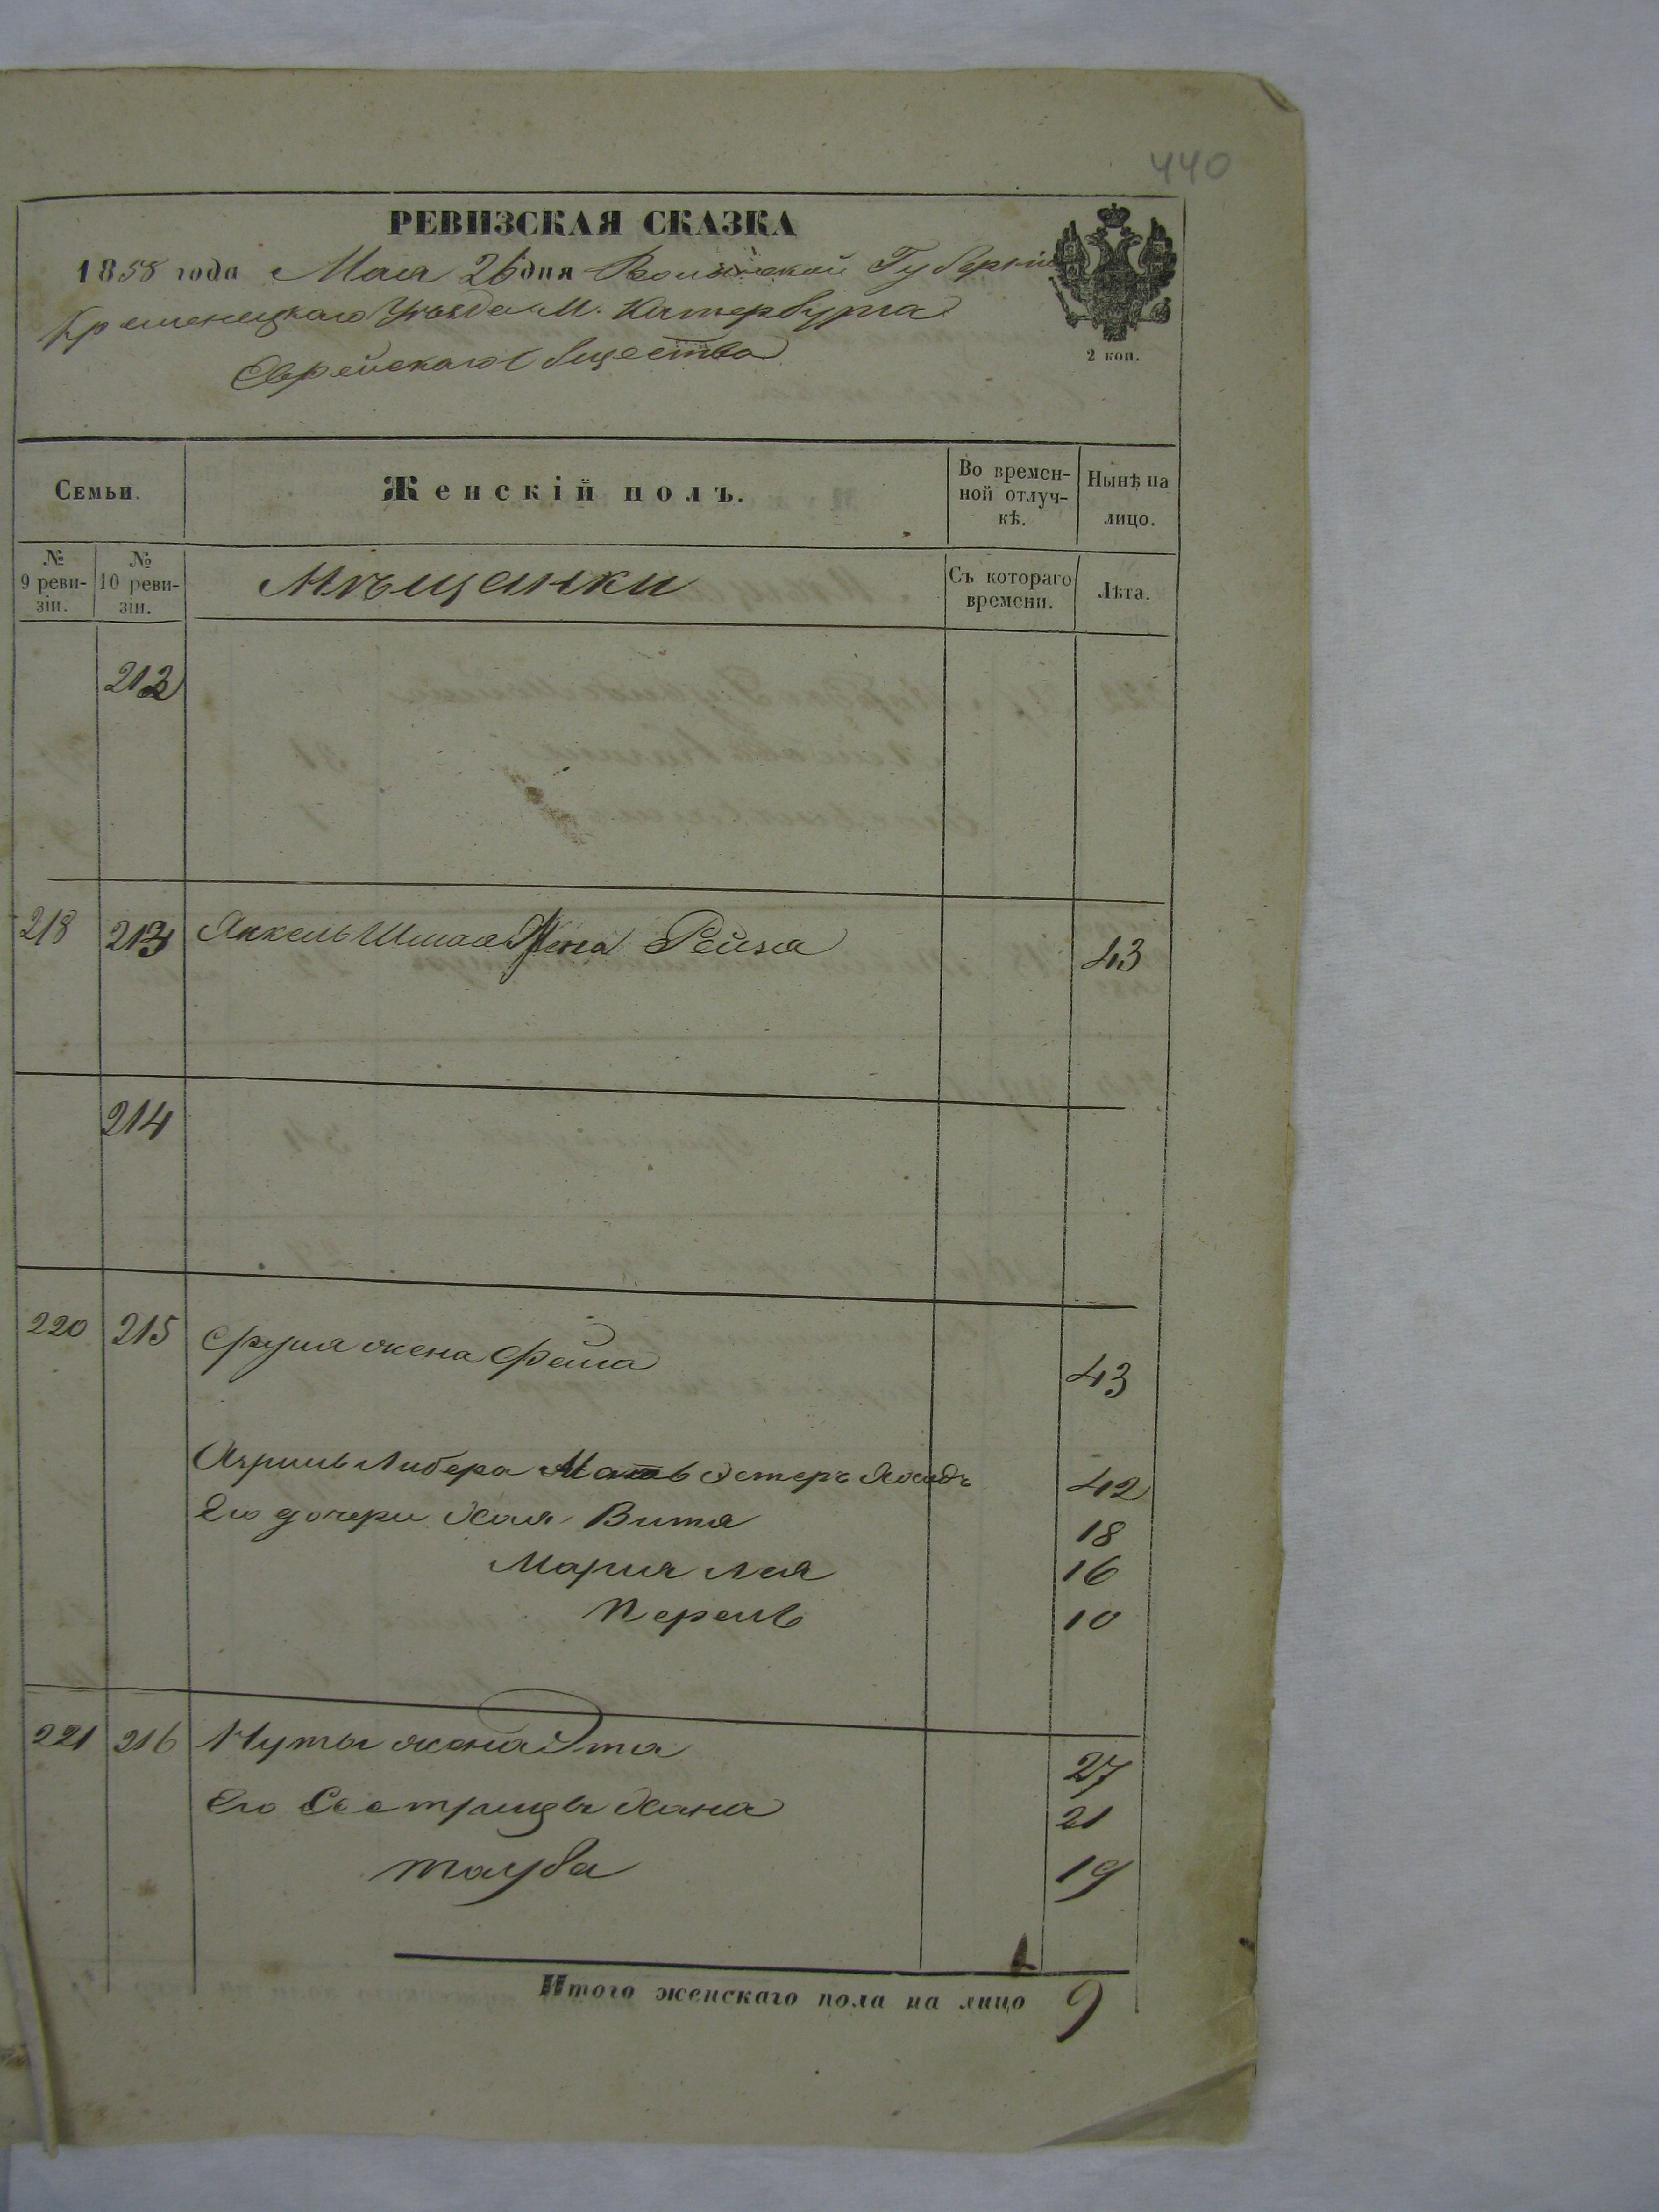 440
РЕВИЗСКАЯ СКАЗКА
1858 года Мая 26 дня Волынской Губерніи
Кременецкаго Уѣзда М. Катербурга
Еврейскаго Общества
2 коп.
Семьи.
Женскій полъ.
Во времен-
ной отлуч-
кѣ.
Нынѣ на
лицо.
№
9 реви-
зіи.
№
10 реви-
зіи.
Мѣщанки
Съ котораго
времени.
Лѣта.
212
218 213 Янкель Шмая Жена Рейза 43
214
220 215 жена Фейга 43
Либера Мать Эстеръ 42
Его дочери Хая Витя 18
Мария Лея 16
Перель 10
221 216 Нуты жена Эта 27
Его Сестрицы Хана 21
Тауба 19
Итого женскаго пола на лицо 9